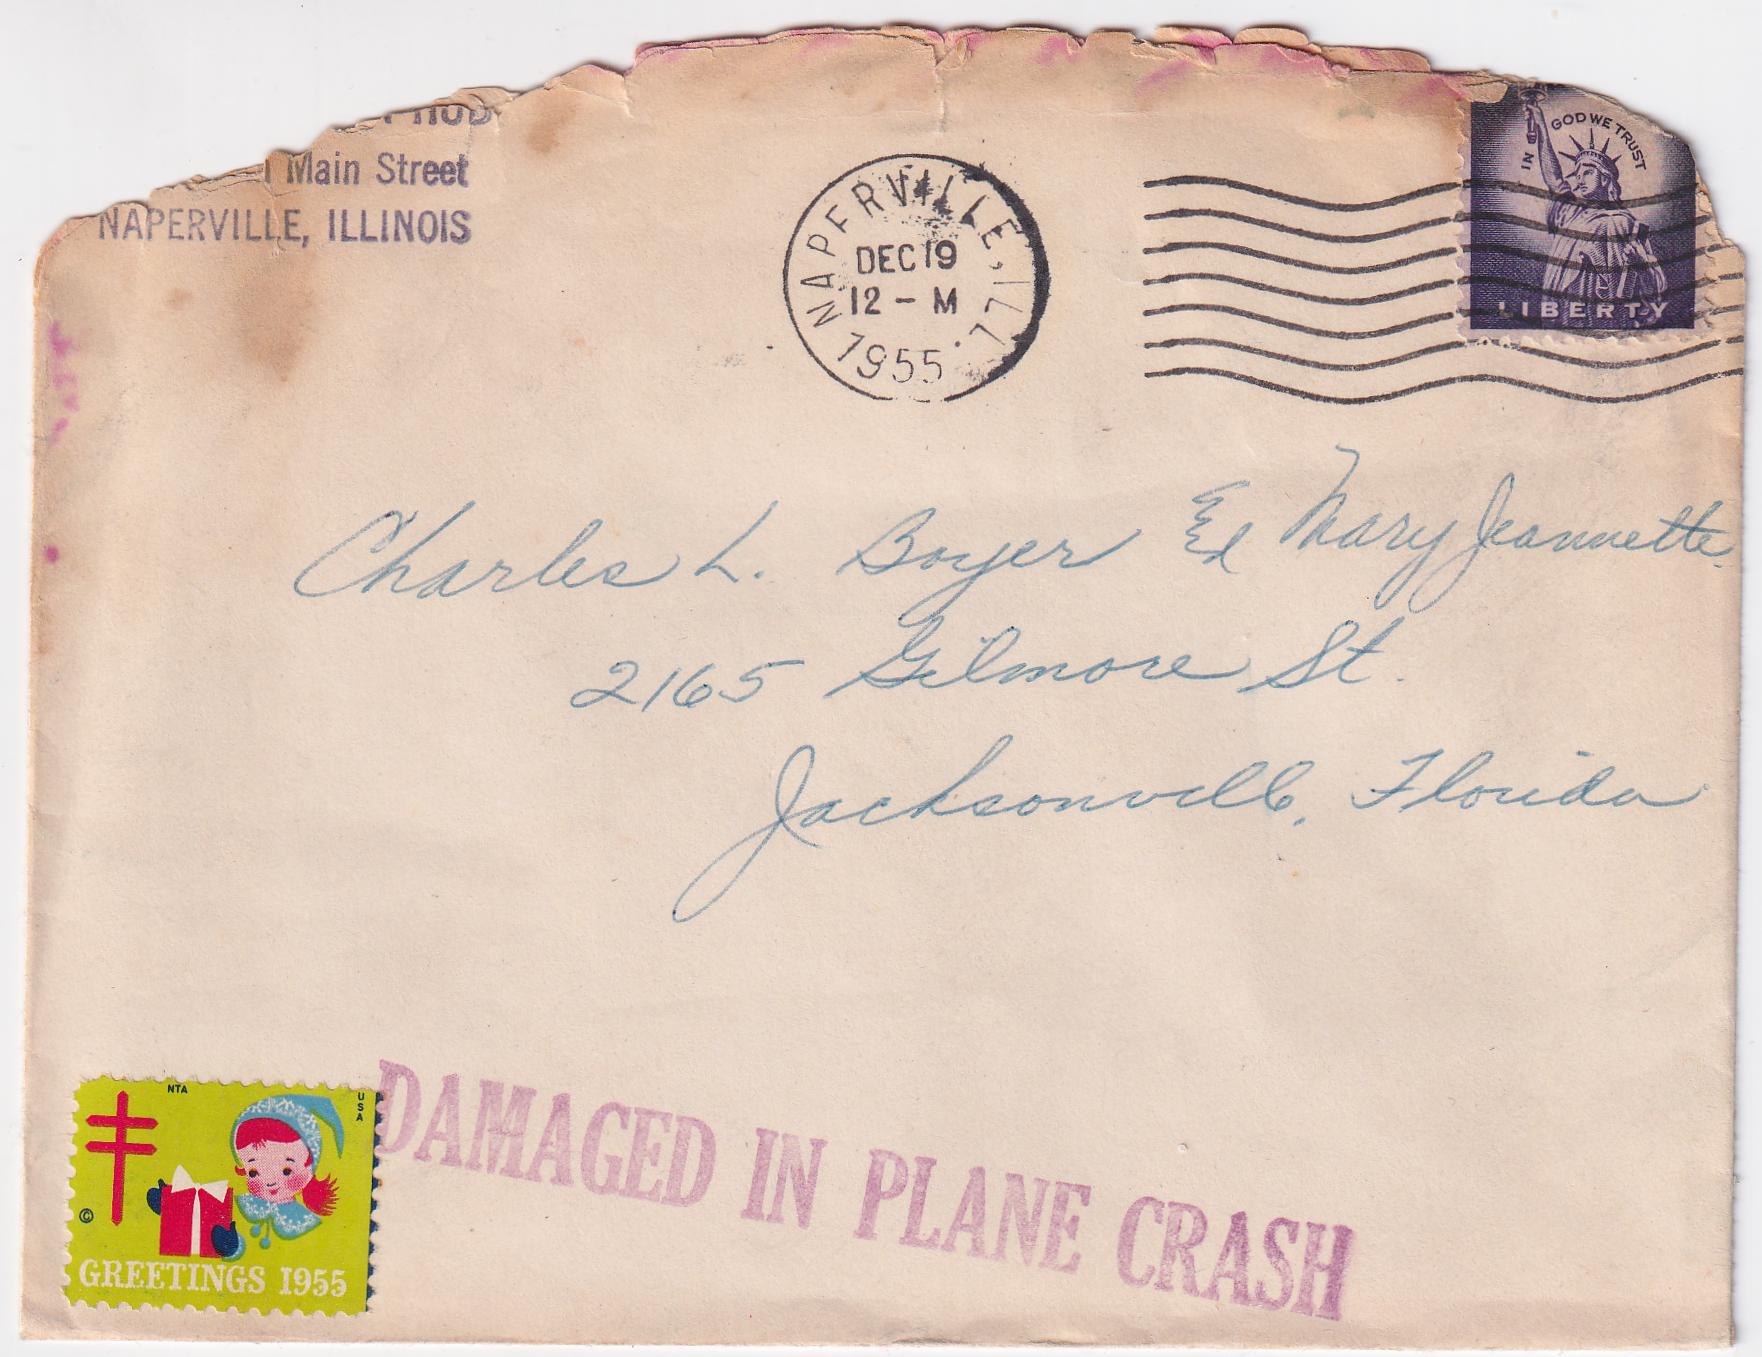 Main Street
NAPERVILLE, ILLINOIS
NAPERVILLE, ILL.
DEC 19
12 - M
1955
IN GOD WE TRUST
LIBERTY
Charles L. Boyer Ed Mary Jeannette
2165 Gilmore St.
Jacksonville, Florida
NTA
USA
©
GREETINGS 1955
DAMAGED IN PLANE CRASH